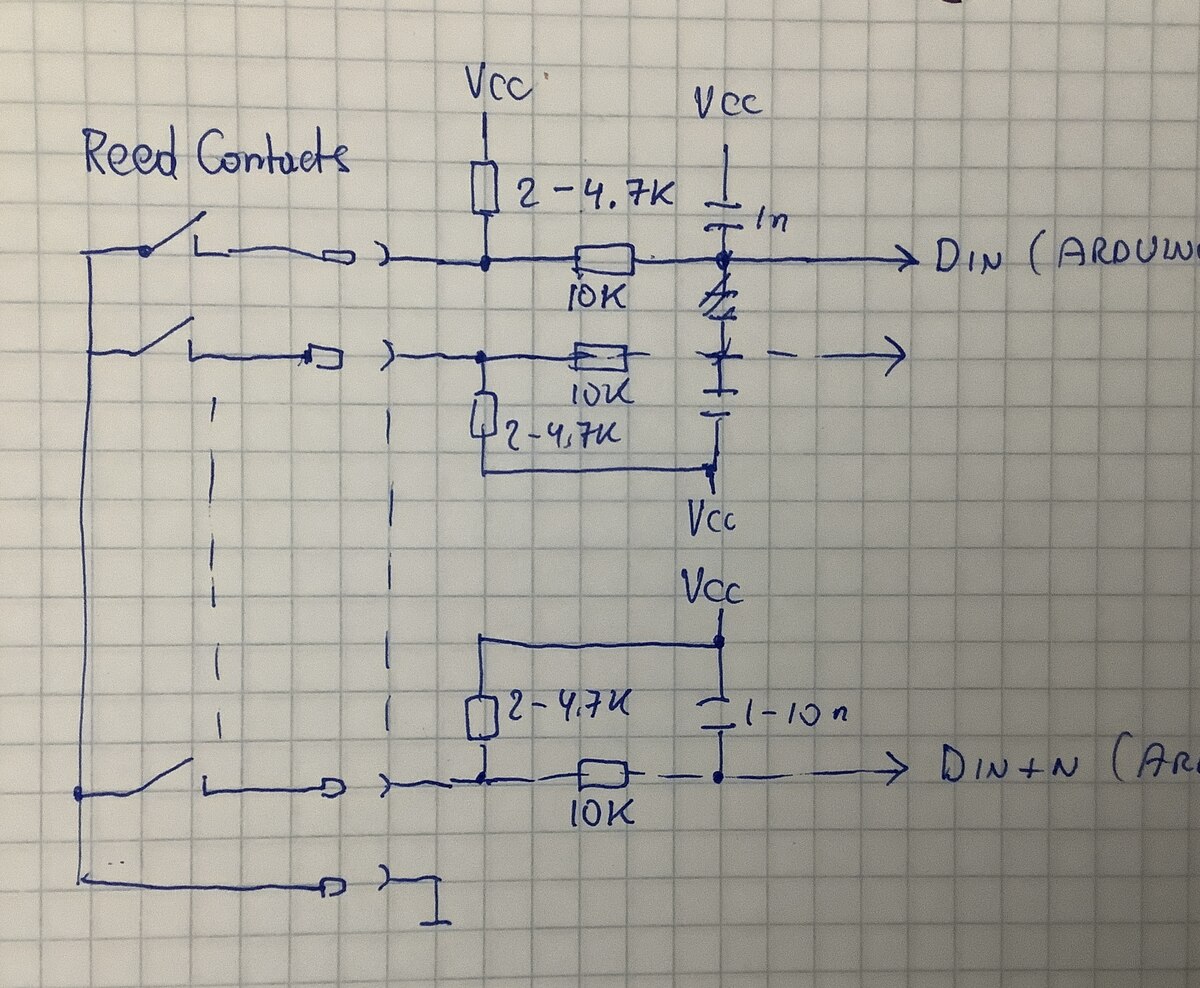 Vcc
Vcc
Reed Contacts
2-4.7K
1n
DIN (ARDUINO
10K
10K
2-4,7K
Vcc
Vcc
2-4,7K
1-10n
DIN+N (AR
10K